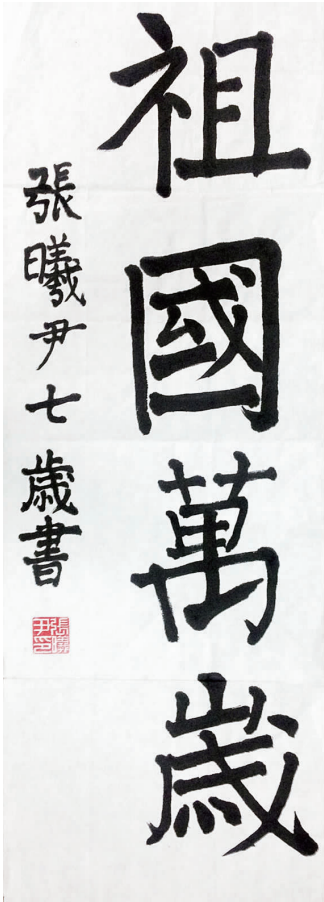 祖國萬歲
張曦尹七歲書
張曦尹印